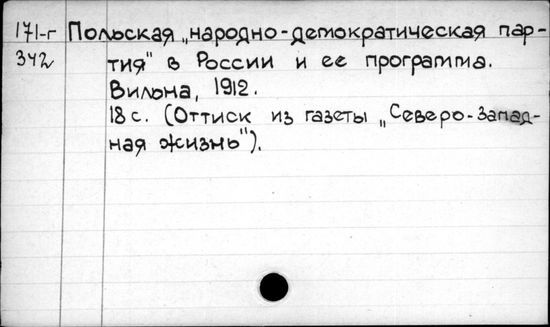 171-г Польская „народно-демократическая пар-
342 тия" в России и ее программа.
Вильна, 1912.
18 с. (Оттиск из газеты „Северо-Запад-
ная жизнь").